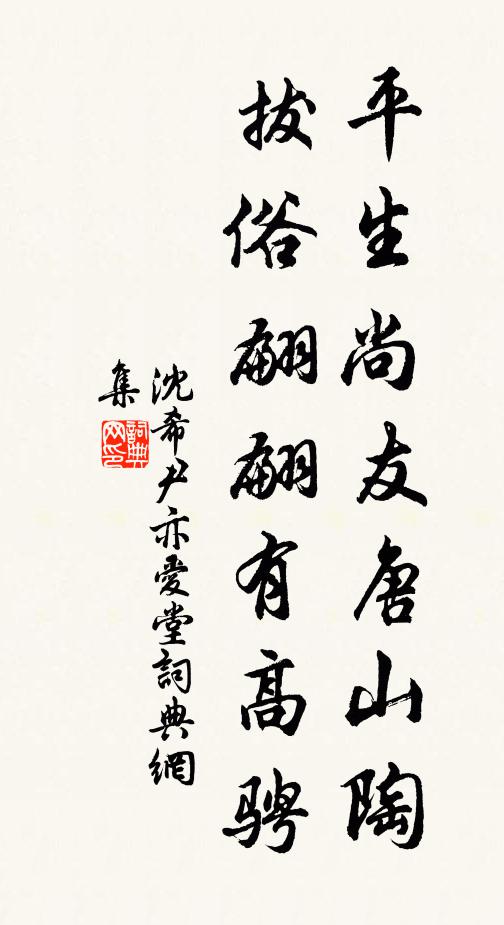 平生尚友唐山陶
拔俗翩翩有高騁
沈希尹亦愛堂詞典網
集
詞典
网印